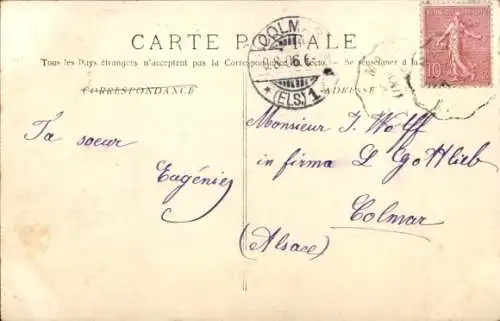 CARTE POSTALE
Tous les Pays étrangers n'acceptent pas la Correspondance au recto. Se renseigner à la
CORRESPONDANCE
ADRESSE
COLM
(ELS) 1
10
Ta soeur
Eugénie
Monsieur J. Wolff
in firma L Gottlieb
Colmar
(Alsace)